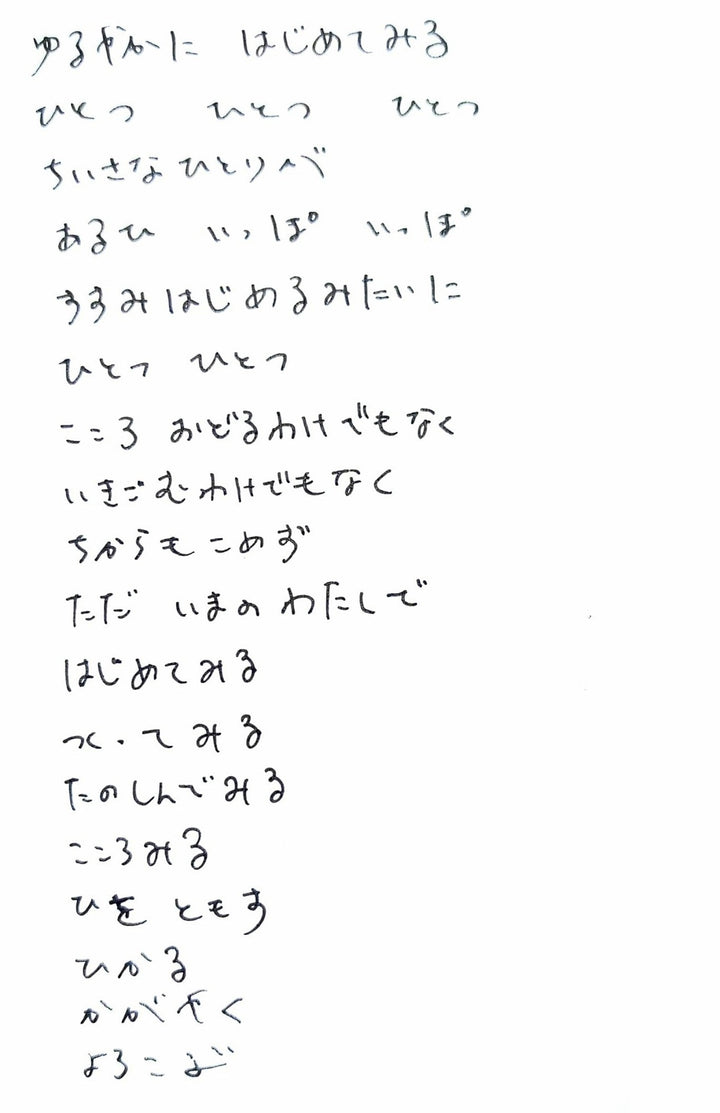 ゆるやかに はじめてみる
ひとつ ひとつ ひとつ
ちいさなひとりべ
あるひ いっぽ いっぽ
うるみはじめるみたいに
ひとつ ひとつ
こころ おどるわけでもなく
いきごむわけでもなく
ちからもこめず
ただ いまの わたしで
はじめてみる
つくってみる
たのしんでみる
こころみる
ひを ともす
ひかる
かがやく
よろこぶ